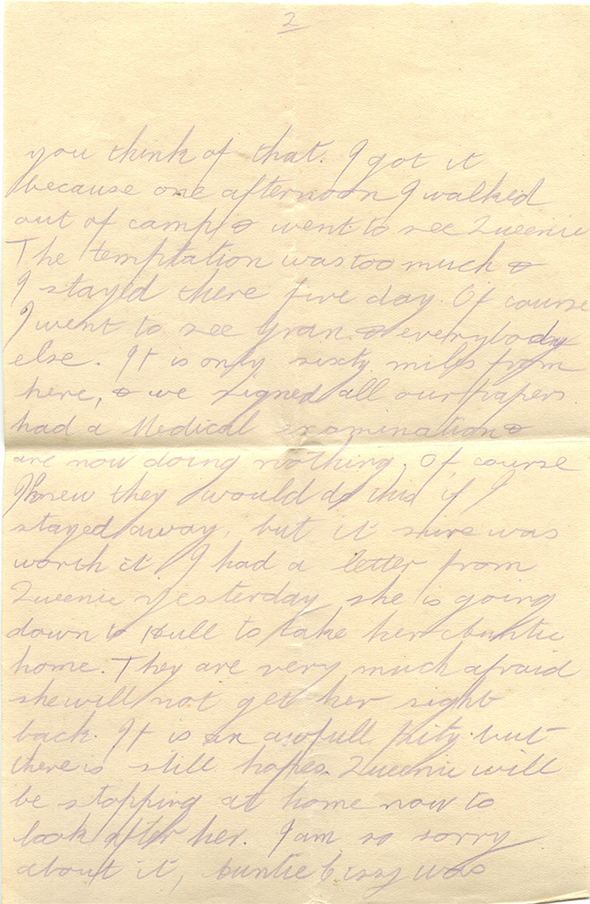 2
you think of that. I got it
because one afternoon I walked
out of camp & went to see Queenie
The temptation was too much &
I stayed there five day. Of course
I went to see Gran & everybody
else. It is only sixty miles from
here, & we signed all our papers
had a Medical examination &
are now doing nothing. Of course
I knew they would do this if I
stayed away, but it shure was
worth it. I had a letter from
Queenie yesterday she is going
down to Hull to take her Auntie
home. They are very much afraid
she will not get her sight
back. It is an awfull pity but
there is still hopes. Queenie will
be stopping at home now to
look after her. I am so sorry
about it, Auntie Cissy was